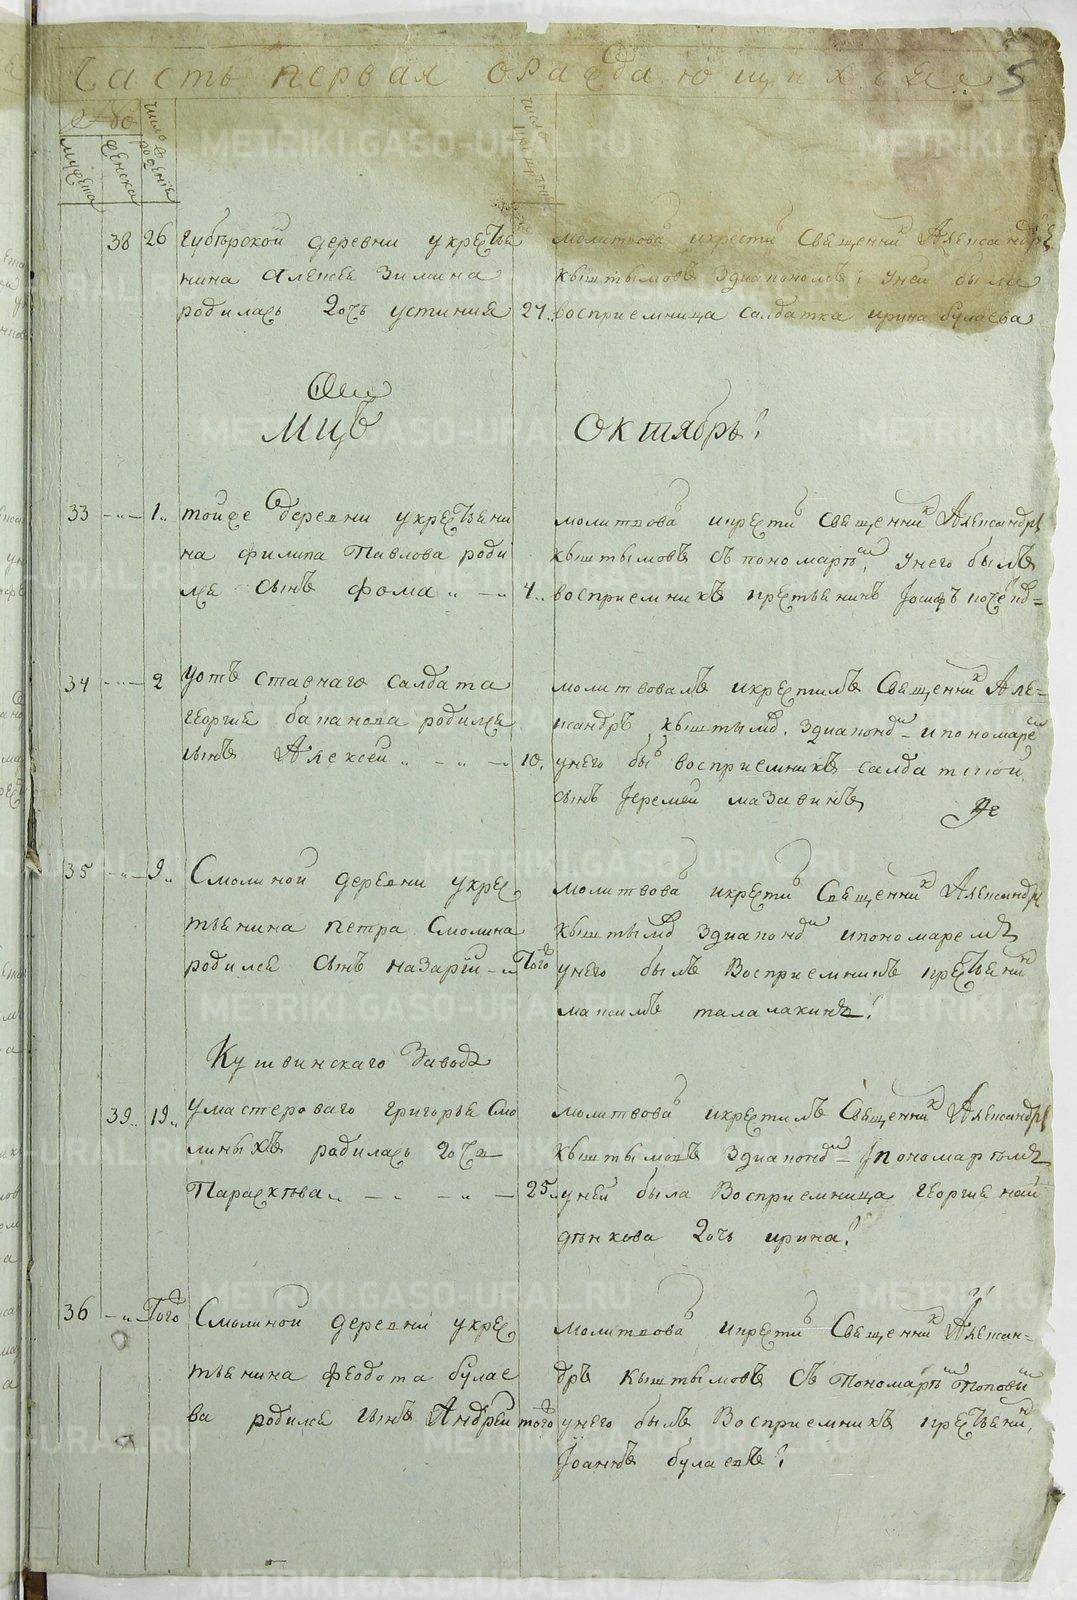 Часть первая о раждающихся
5
№
число рожденiя
мужеска
женска
38 26 Губерской деревни укрестья
нина алексея Зимина
родилась дочь устиния 27..
молитвова икрести Священник Александръ
кыштымовъ Здиакономъ; уней была
восприемница салдатка ирина булаева
Мцъ Октябрь!
33 1.. тойже деревни укрестьяни
на филипа Павлова роди
лся сынъ фома 4..
молитвова икрести Священник Александръ
кыштымовъ съ пономарем, Унего былъ
восприемникъ крестьянинъ Iосифъ
34 2 салдата
георгия баканова родился
сынъ Алексей 10.
молитвовалъ икрестилъ Священник Але=
ксандръ кыштымов. Здиаконом ипономарем
унего бы восприемникъ салдатской
сынъ Iеремей мазавинъ
35 9.. Смолиной деревни укрес
тьянина петра Смолина
родился сынъ назарiй Того
молитвова икрести Священник Александръ
кыштымов Здиаконом ипономаремъ
унего былъ Восприемникъ крестьянин
максимъ талалакинъ!
Кушвинскаго Завода
39.. 19.. умастероваго григорья Смо
линыхъ радилась дочь
Параскева 25..
молитвова икрестилъ Священник Александръ
кыштымовъ Здиаконом Iпономаремъ
уней была Восприемница георгия най
дънкова дочь ирина!
36 Того Смолиной деревни укрес
тьянина феодота булае
ва родился сынъ Андрей того
молитвова икрести Священник Алексан=
дръ кыштымовъ съ Пономаремъ Поповым
унего былъ Восприемникъ крестьянин,
Iоаннъ булаевъ!
METRIKI.GASO-URAL.RU